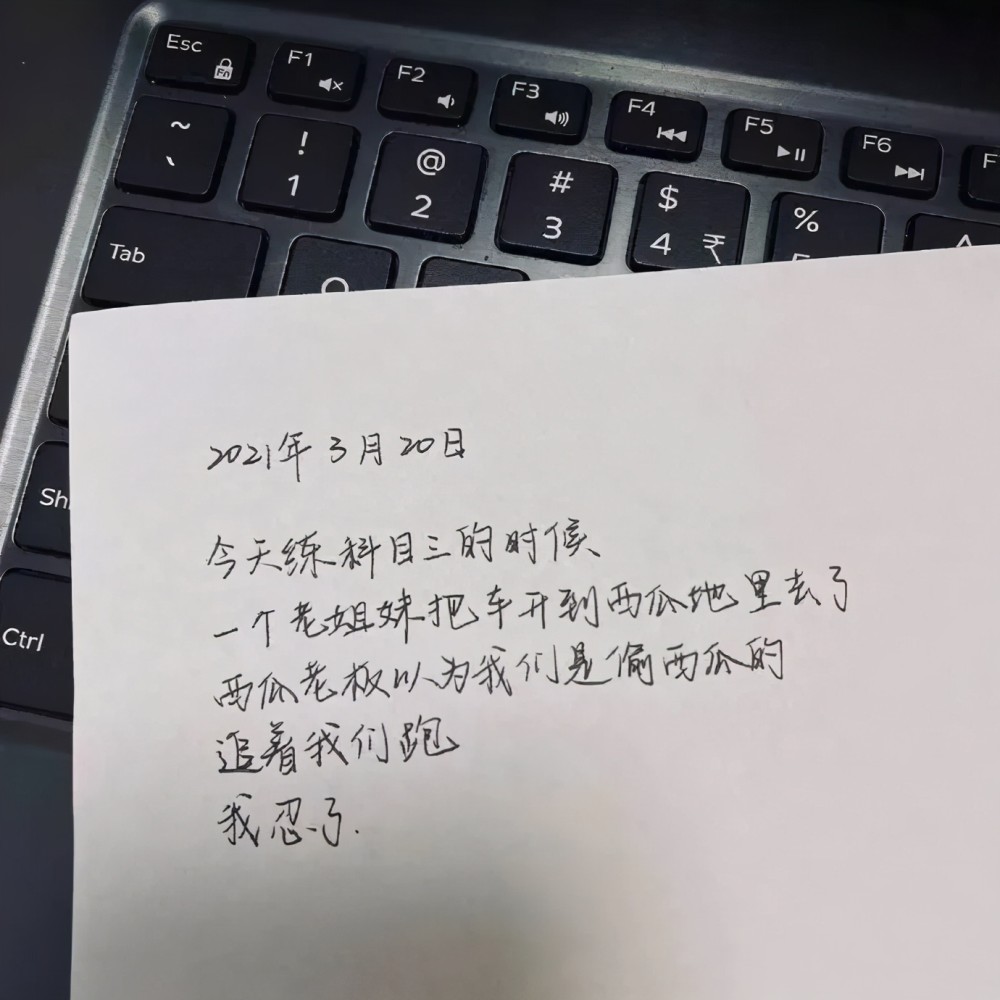 Esc Fn F1 F2 F3 F4 F5 F6 F
~ ` ! 1 @ 2 # 3 $ 4 ₹ %
Tab
Ctrl
2021年3月20日
今天练科目三的时候
一个老姐妹把车开到西瓜地里去了
西瓜老板以为我们是偷西瓜的
追着我们跑
我忍了.